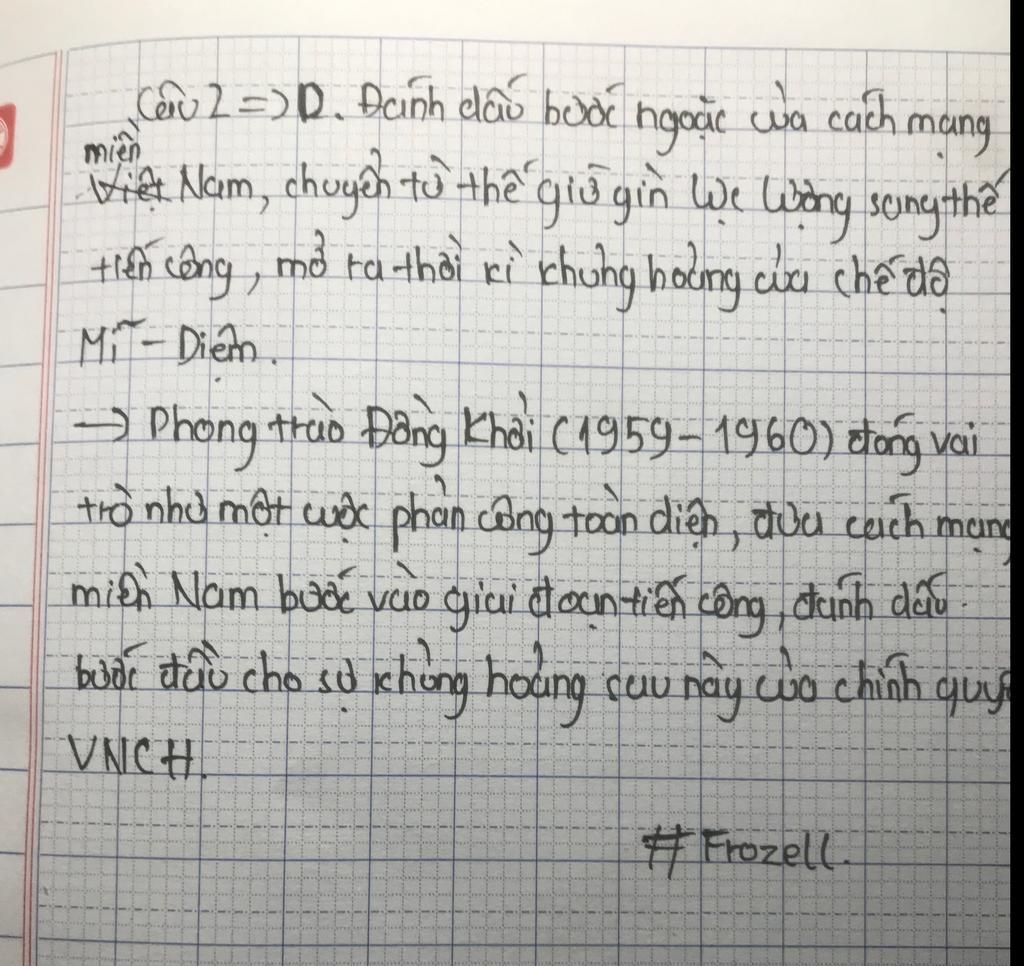 Câu 2 => D. Đánh dấu bước ngoặc của cách mạng
miền
Việt Nam, chuyển từ thế giữ gìn lực lượng sang thế
tiến công, mở ra thời kì khủng hoảng của chế độ
Mĩ - Diệm.
→ Phong trào Đồng Khởi (1959 - 1960) đóng vai
trò như một cuộc phản công toàn diện, đưa cách mạng
miền Nam bước vào giai đoạn tiến công, đánh dấu
bước đầu cho sự khủng hoảng sau này của chính quy
VNCH.
# Frozell.